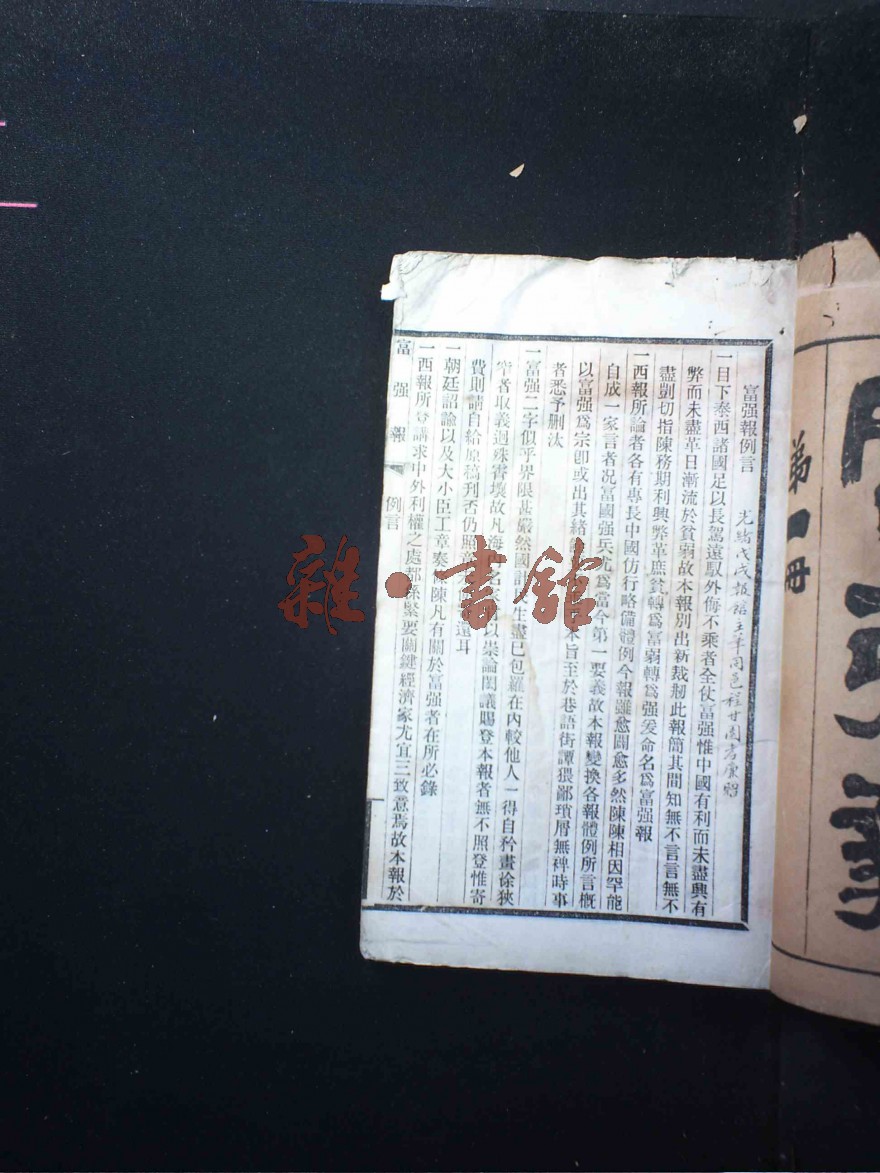 第一册
富强報例言
光緒戊戌報館主筆同邑程甘園
一目下泰西諸國足以長駕遠馭外侮不乘者全仗富强惟中國有利而未盡興有
弊而未盡革日漸流於貧弱故本報別出新裁剏此報簡其間知無不言言無不
盡剴切指陳務期利興弊革庶貧轉爲富弱轉爲强爰命名爲富强報
一西報所論者各有專長中國仿行略備體例今報雖愈闢愈多然陳陳相因罕能
自成一家言者况富國强兵尤爲當今第一要義故本報變換各報體例所言概
以富强爲宗卽或出其緒 旨至於巷語街譚猥鄙瑣屑無裨時事
者悉予删汰
一富强二字似乎界限甚嚴然國 生盡已包羅在内較他人一得自矜畫徐狹
窄者取義迥殊霄壤故凡海内名 以崇論閎議賜登本報者無不照登惟寄
費則請自給原稿刋否仍照 還耳
一朝廷詔諭以及大小臣工章奏條陳凡有關於富强者在所必錄
一西報所登講求中外利權之處都係緊要關鍵經濟家尤宜三致意焉故本報於
富强報 例言
雜·書館